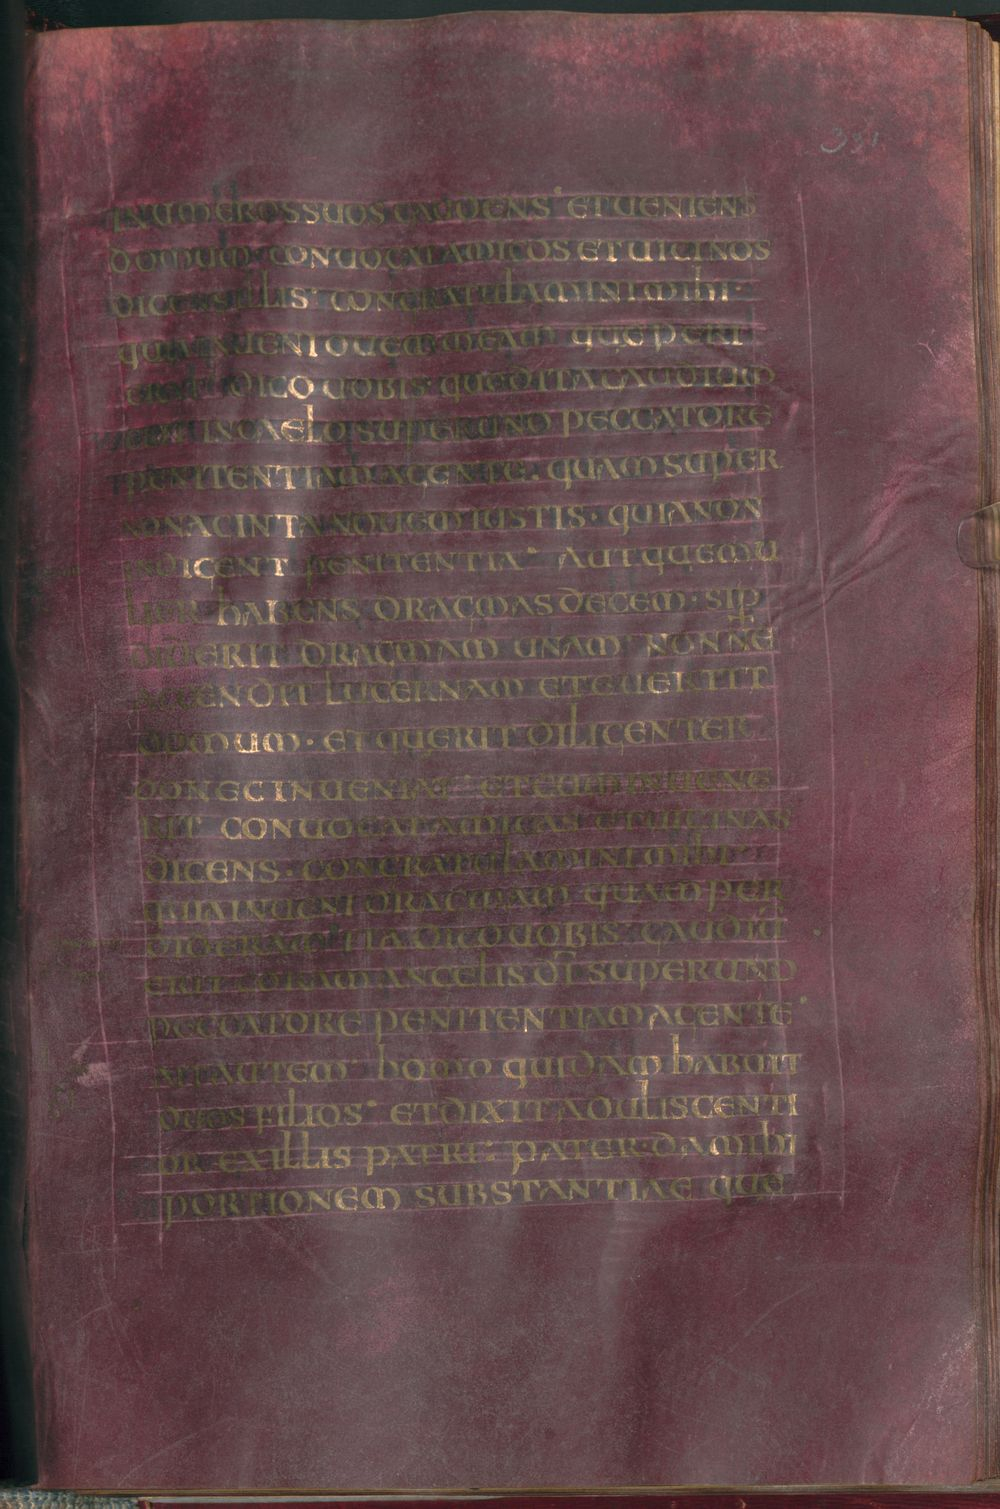 INUMEROSSUOS GAUDENS· ET UENIENS
DOMUM· CONUOCAT AMICOS ET UICINOS
DICENS ILLIS· CONGRATULAMINI MIHI·
QUIA INUENI OUEM MEAM QUE PERI
DICO UOBIS· QUOD ITA GAUDIUM
IN CAELO SUPER UNO PECCATORE
PENITENTIAM AGENTE· QUAM SUPER
NONAGINTA NOUEM IUSTIS· QUI NON
INDIGENT PENITENTIA· AUT QUE MU
LIER HABENS DRAGMAS DECEM· SI P
DIDERIT DRAGMAM UNAM· NONNE
ACCENDIT LUCERNAM ET EUERTIT
DOMUM· ET QUERIT DILIGENTER
DONEC INUENIAT· ET CUM INUENE
RIT CONUOCAT AMICAS ET UICINAS
DICENS· CONGRATULAMINI MIHI·
QUIA INUENI DRAGMAM QUAM PER
DIDERAM· ITA DICO UOBIS· GAUDIŪ
ERIT CORAM ANGELIS DI SUPER UNO
PECCATORE PENITENTIAM AGENTE·
AIT AUTEM· HOMO QUIDAM HABUIT
DUOS FILIOS· ET DIXIT ADULISCENTI
OR EX ILLIS PATRI· PATER DA MIHI
PORTIONEM SUBSTANTIAE QUE